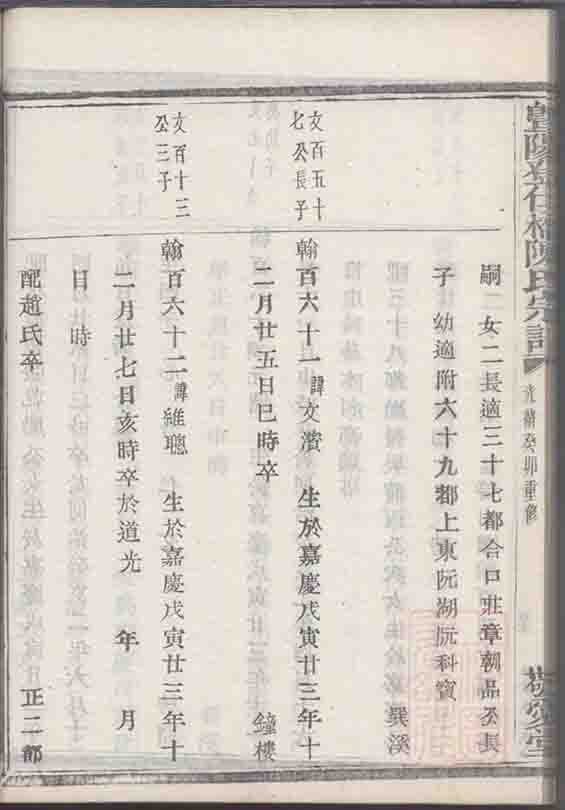 暨陽登仕橋陳氏宗譜
光緒癸卯重修
嗣 女二長適三十七都合口莊章朝品公長
子幼適附六十九都上東阮湖阮科寶 巽溪
文百五十
七公長子
翰百六十一諱文瀠 生於嘉慶戊寅廿三年十
二月廿五日巳時卒 鐘樓
文百十三
公三子
翰百六十二諱維聰 生於嘉慶戊寅廿三年十
二月廿七日亥時卒於道光 年 月
日時
配趙氏卒 正二都